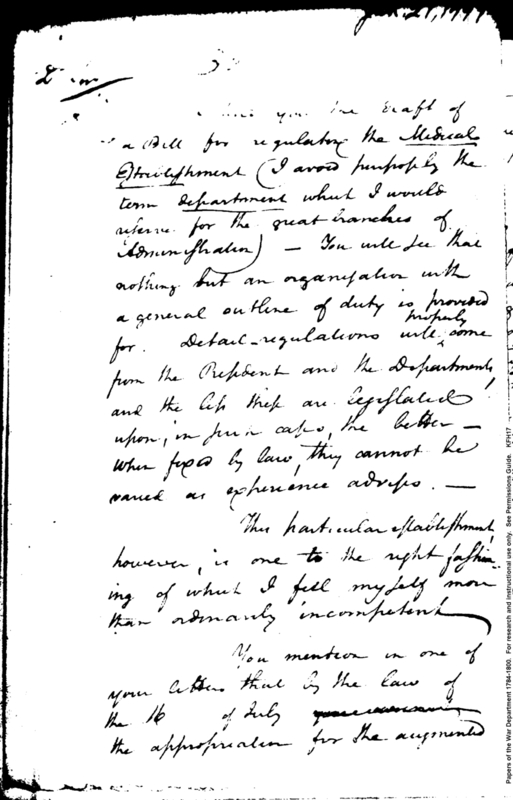 Sir
you the Draft of
a Bill for regulating the Medical
Establishment (I avoid purposely the
term department which I would
reserve for the great branches of
Administration) — You will see that
nothing but an organisation with
a general outline of duty is provided
for. Detail-regulations will properly come
from the President and the Departments,
and the less these are legislated
upon, in such cases, the better —
When fixed by law, they cannot be
varied as experience advises. —
This particular establishment,
however, is one to the right fashion-
ing of which I feel myself more
than ordinarily incompetent
You mention in one of
your letters that by the law of
the 16 of July
the appropriation for the augmented
Papers of the War Department 1784-1800. For research and instructional use only. See Permissions Guide. KFH17